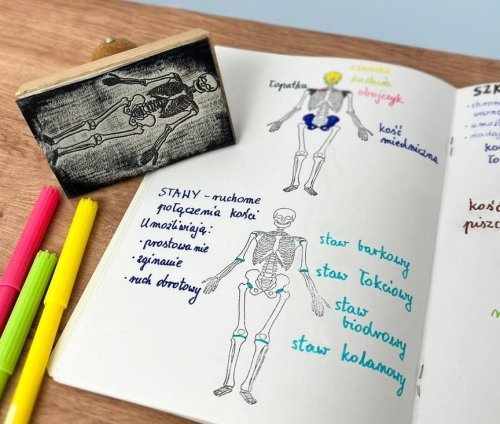 czaszka
żuchwa
obojczyk
łopatka
kość
miedniczna
STAWY - ruchome
połączenia kości
Umożliwiają:
• prostowanie
• zginanie
• ruch obrotowy
staw barkowy
staw łokciowy
staw
biodrowy
staw kolanowy
SZK
kość
piszcz